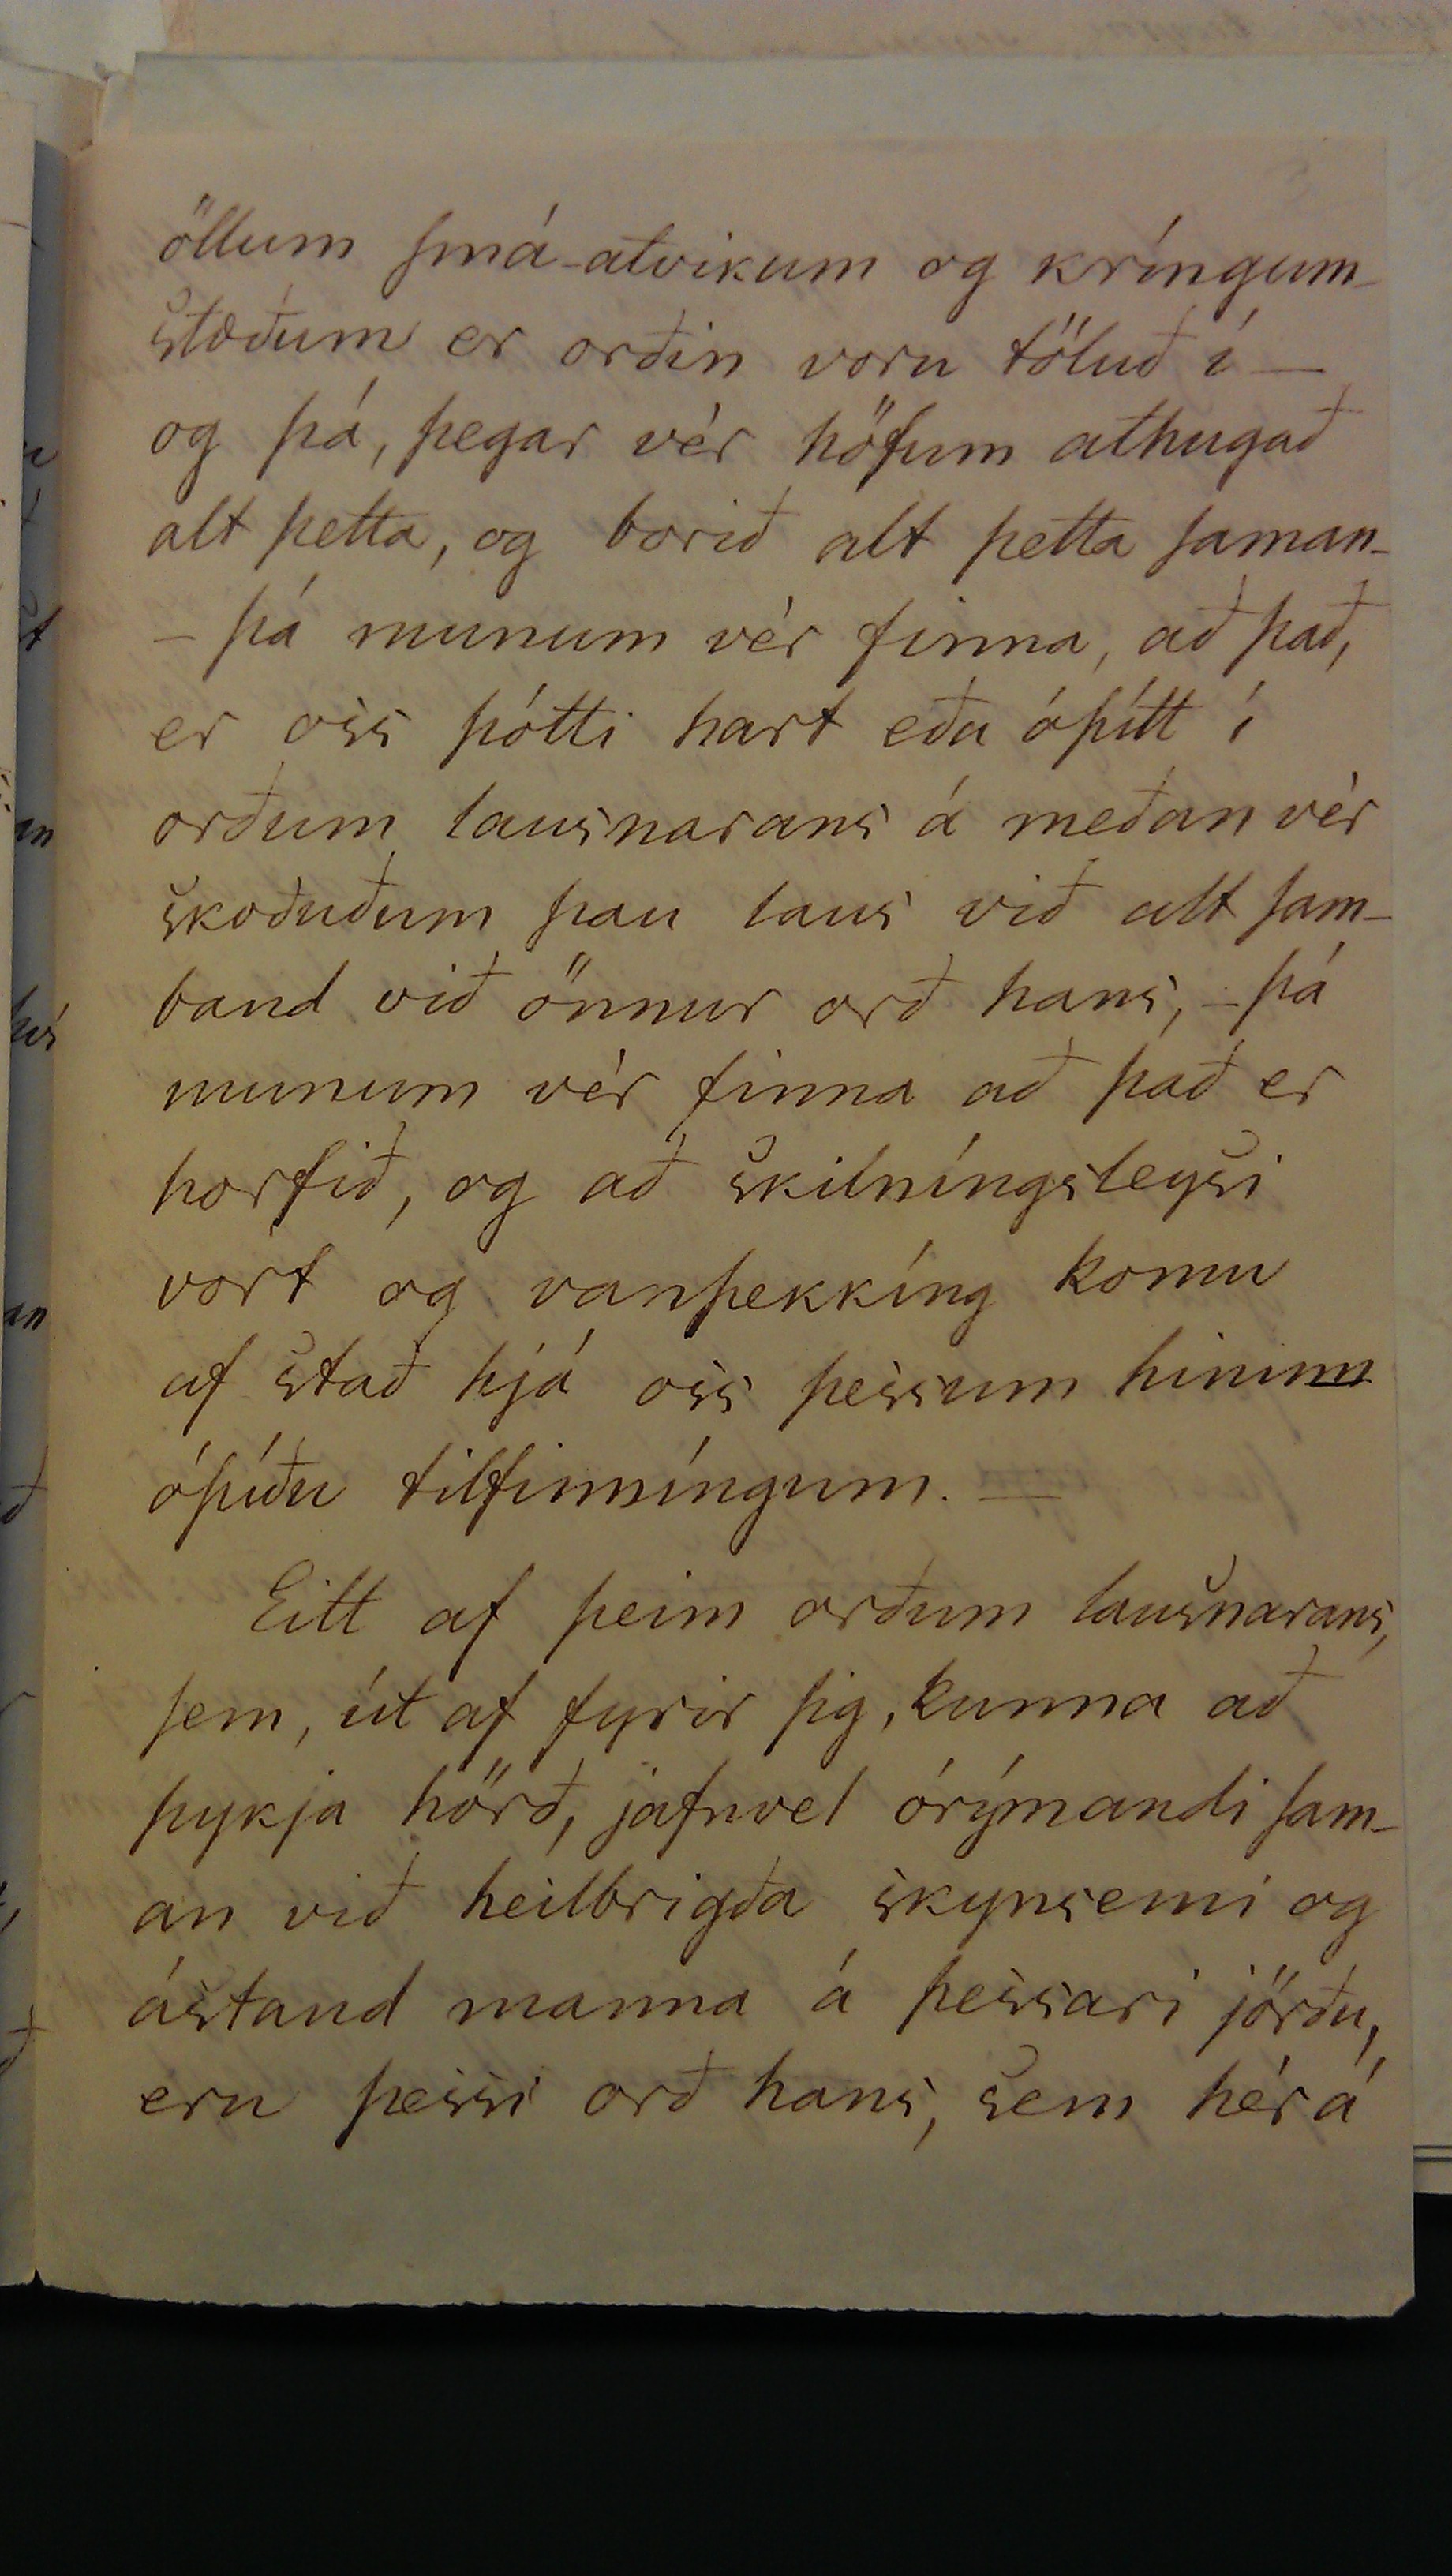 öllum smá-atvikum og kríngum-
stæðum er orðin voru töluð í —
og þá, þegar vér höfum athugað
alt þetta, og borið alt þetta saman-
– þá munum vér finna, að það,
er oss þótti hart eða óþítt í
orðum lausnarans á meðan vér
skoðuðum þau laus við alt sam-
band við önnur orð hans, – þá
munum vér finna að það er
horfið, og að skilníngsleysi
vort og vanþekkíng komu
af stað hjá oss þessum hinum
óþíðu tilfinníngum. —
Eitt af þeim orðum lausnarans,
sem, út af fyrir sig, kunna að
þykja hörð, jafnvel órýmandi sam-
an við heilbrigða skynsemi og
ástand manna á þessari jörðu,
eru þessi orð hans, sem hér á